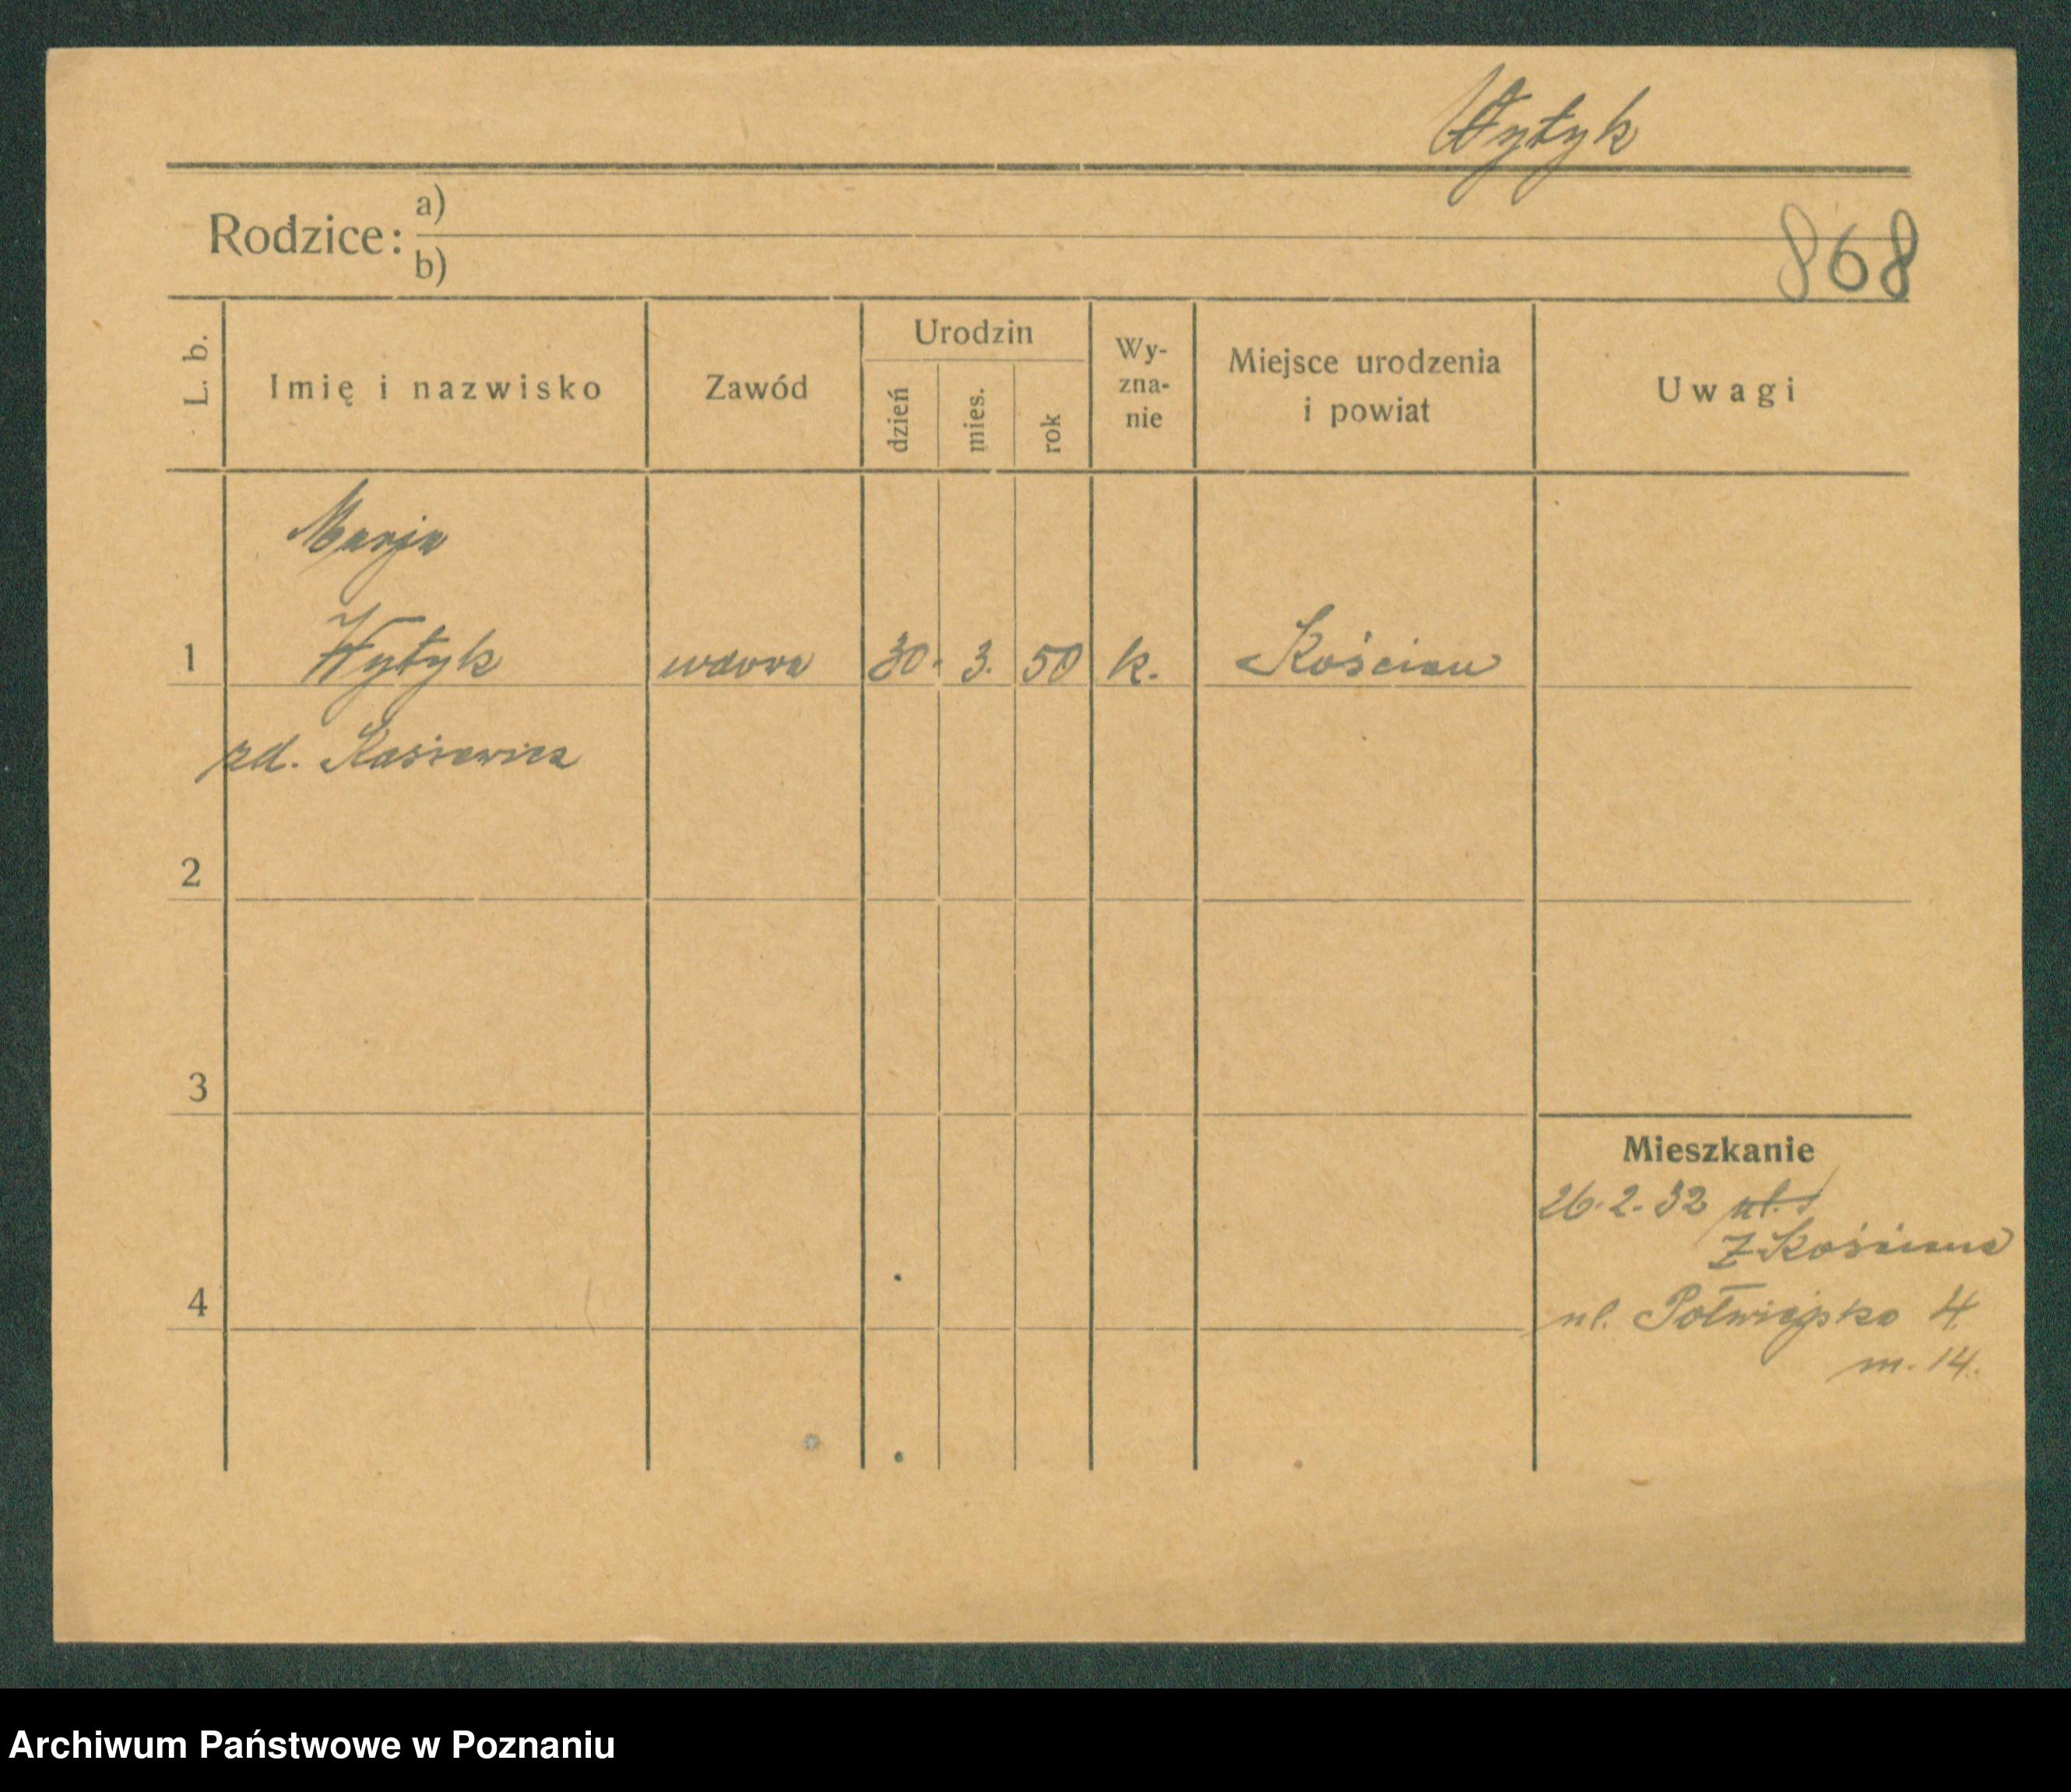 Wytyk
Rodzice:
a)
b)
868
L. b.
Imię i nazwisko
Zawód
Urodzin
dzień
mies.
rok
Wy-
zna-
nie
Miejsce urodzenia
i powiat
Uwagi
Marja
1 Wytyk wdowa 30. 3. 50 k. Kościan
zd. Kasiewicz
2
3
Mieszkanie
26.2.32
z Kościana
4
ul. Półwiejska 4
m. 14.
Archiwum Państwowe w Poznaniu